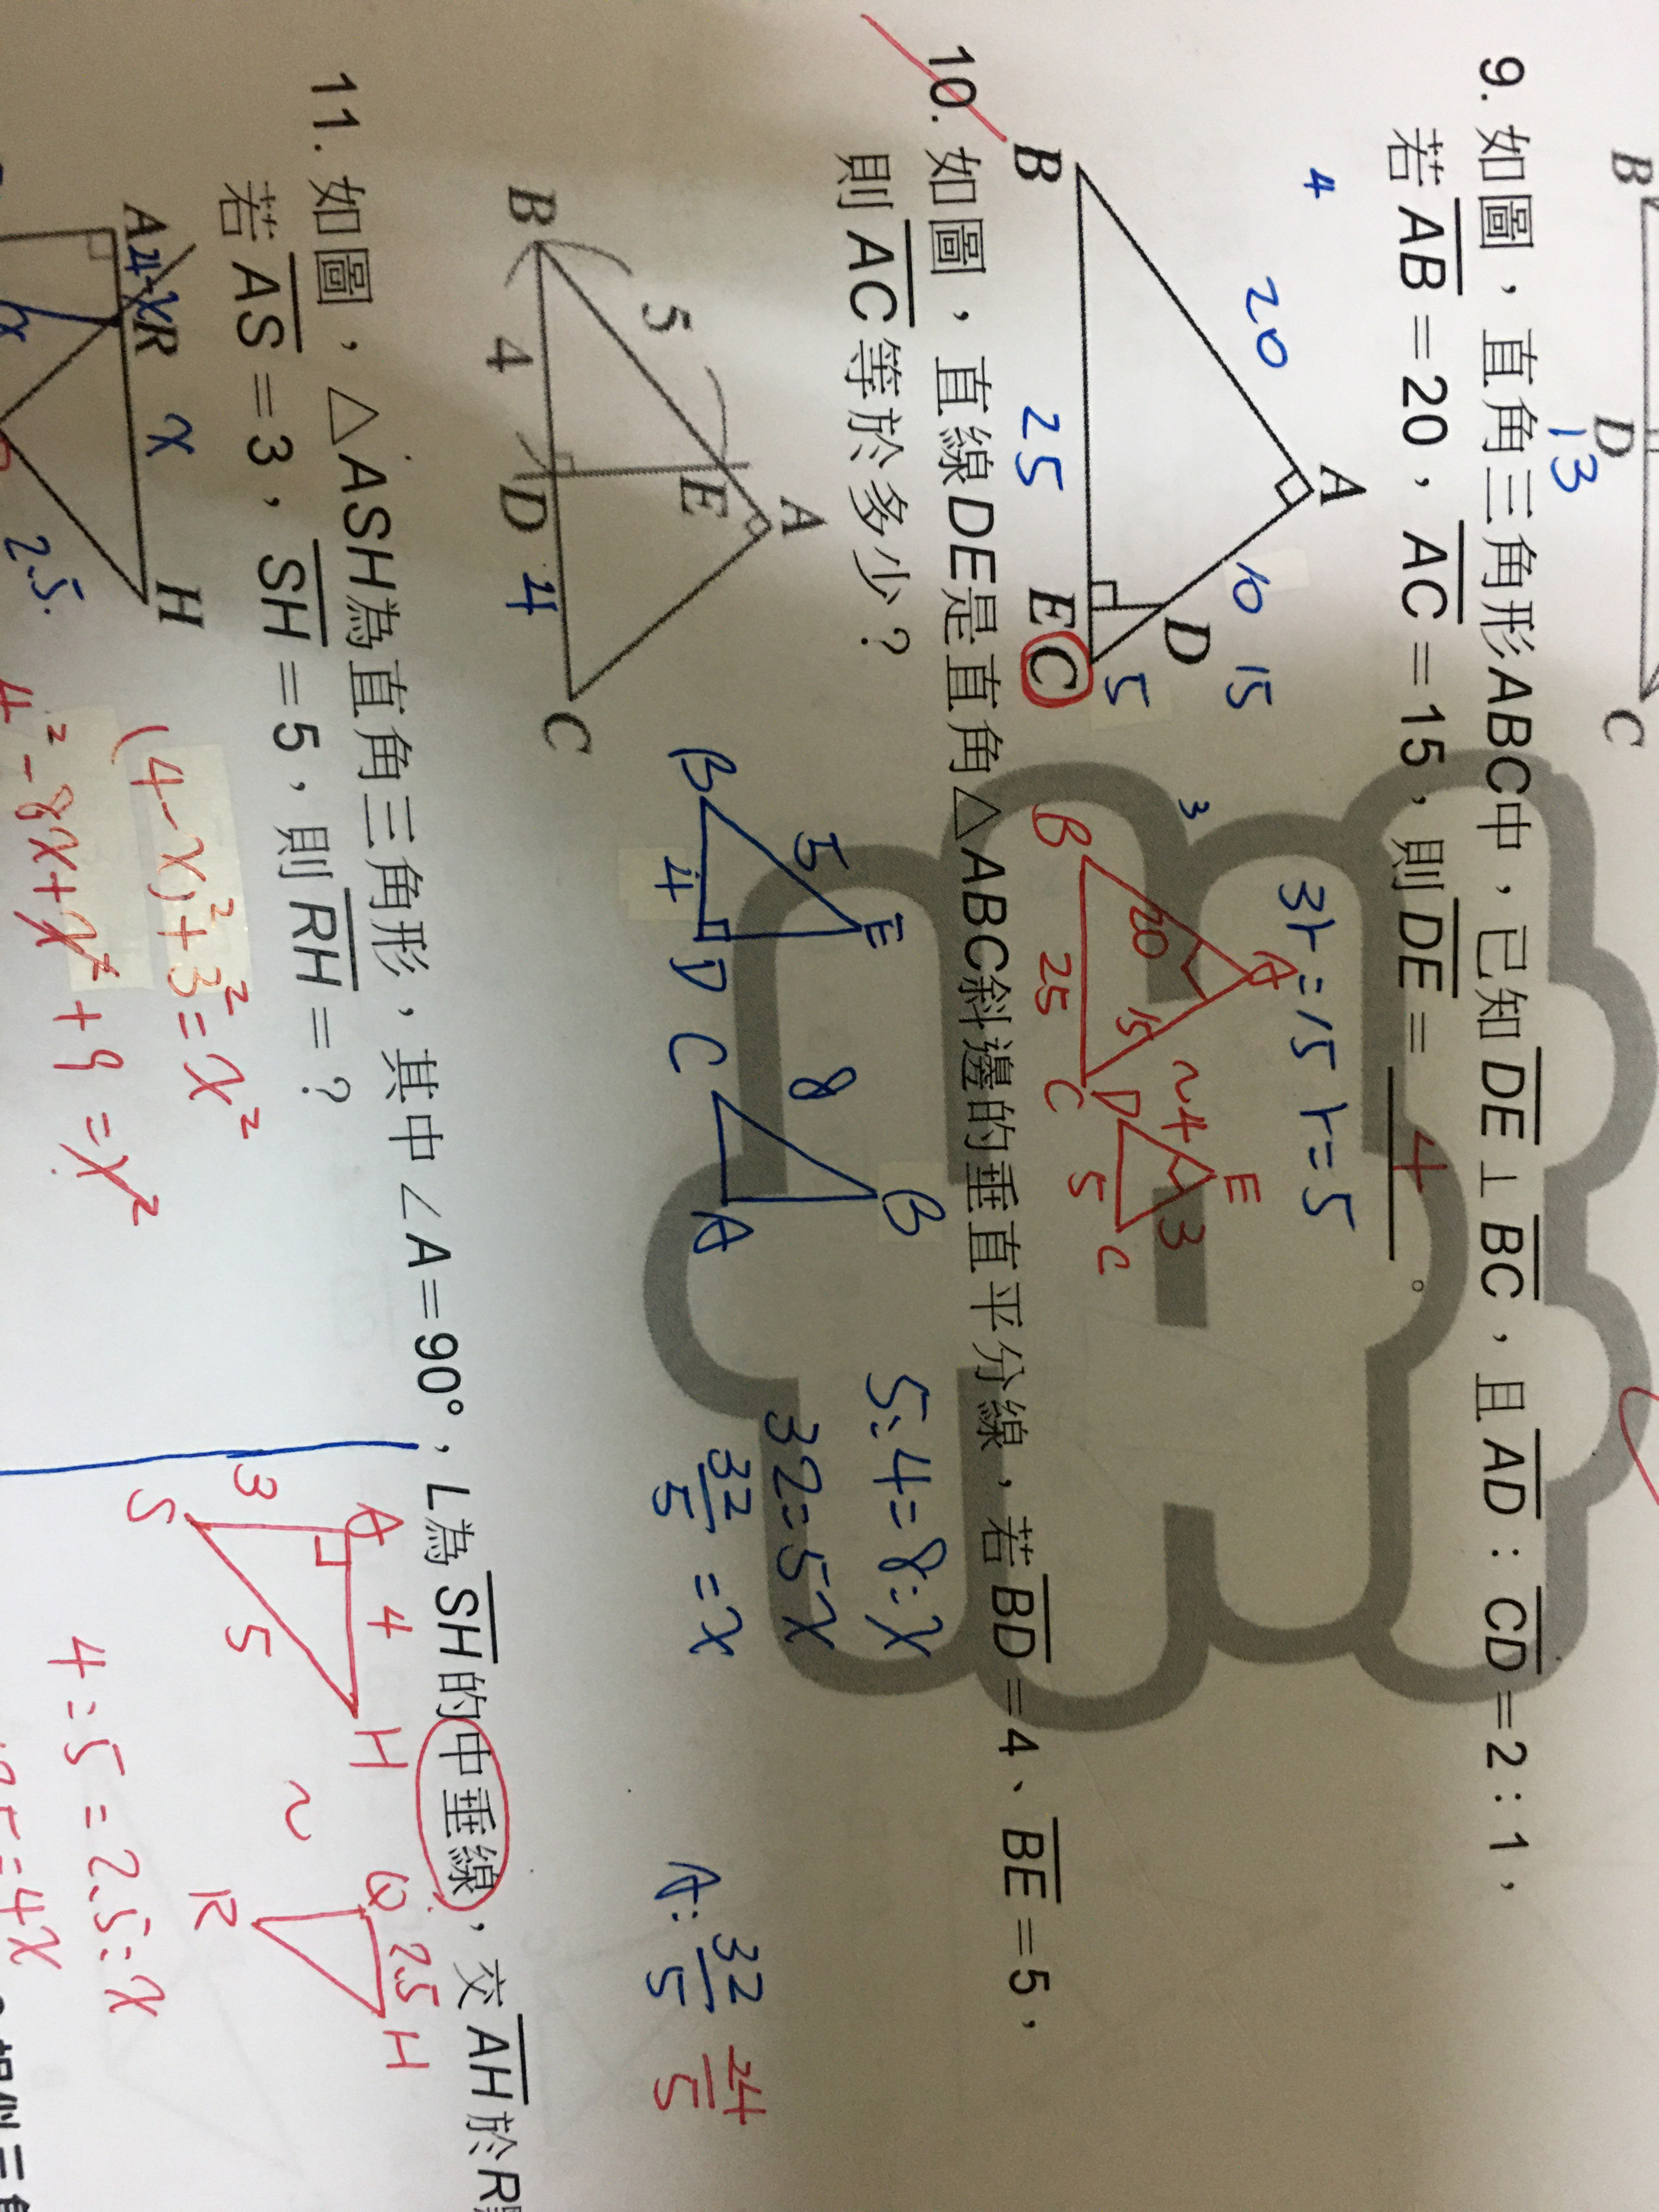 B D C
13
9. 如圖，直角三角形ABC中，已知DE⊥BC，且AD：CD=2：1，
若AB=20，AC=15，則DE= 4 。
4 20 A 10 15
B 25 E C D 5
3r=15 r=5
3
B 20 A 15 25 C ~ D 4 E 3 5 C
10. 如圖，直線DE是直角△ABC斜邊的垂直平分線，若BD=4、BE=5，
則AC等於多少？
B 5 E A
4 D 4 C
B 5 E 4 D
C 8 B A
5:4=8:x
32=5x
32/5=x
A: 32/5 24/5
11. 如圖，△ASH為直角三角形，其中∠A=90°，L為SH的中垂線，交AH於R
若AS=3，SH=5，則RH=？
A 4-x R x H
x 2.5
(4-x)²+3²=x²
4²-8x+x²+9=x²
S 3 A 4 H 5 ~ Q 2.5 H R
4:5=2.5:x
=4x